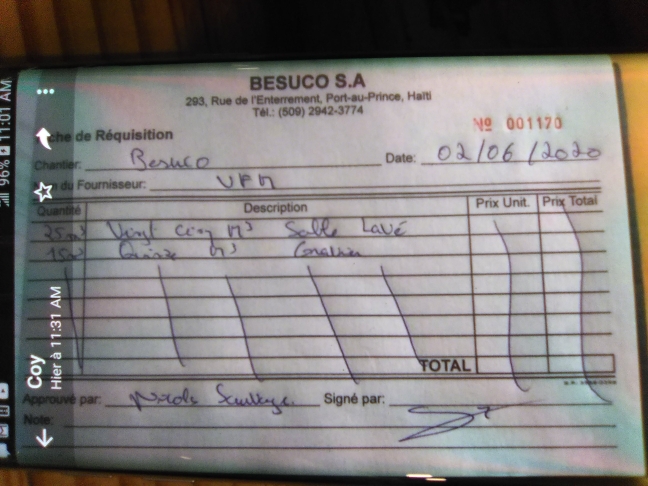 BESUCO S.A
293, Rue de l'Enterrement, Port-au-Prince, Haïti
Tél.: (509) 2942-3774
Nº 001170
che de Réquisition
Chantier: Besuco Date: 02/06/2020
du Fournisseur: UPM
Quantité Description Prix Unit. Prix Total
25m³ Vingt cinq M³ Sable Lavé
15m³ Quinze M³ Gravier
TOTAL
Approuvé par: Signé par:
Note:
Coy
Hier à 11:31 AM
96% 11:01 AM